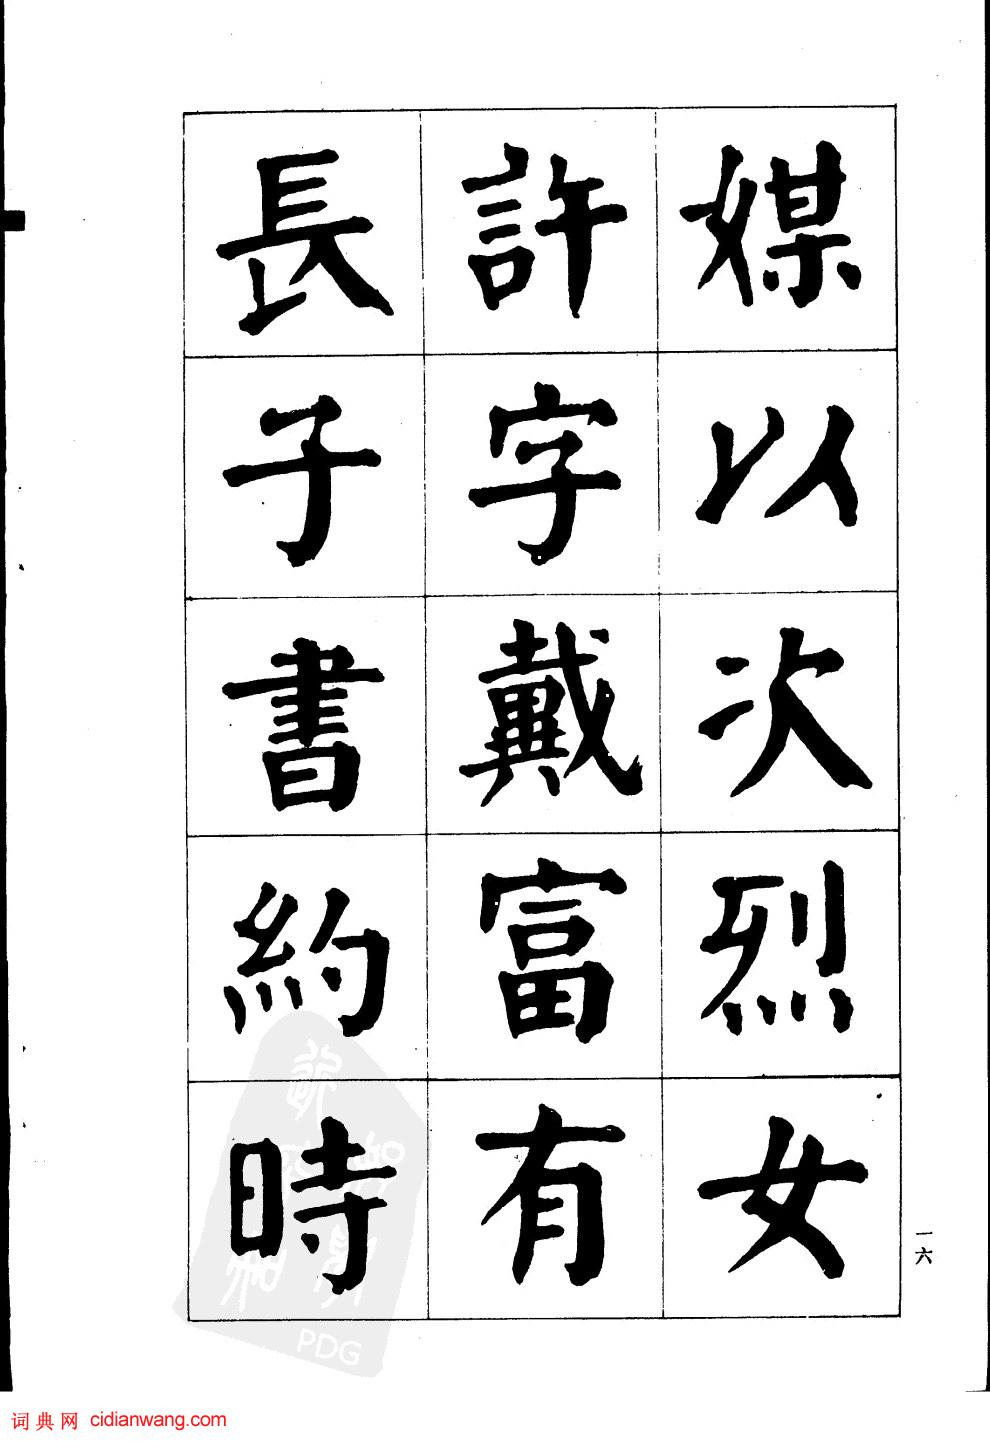 媒以次烈女
許字戴富有
長子書約時
一六
PDG
词典网 cidianwang.com